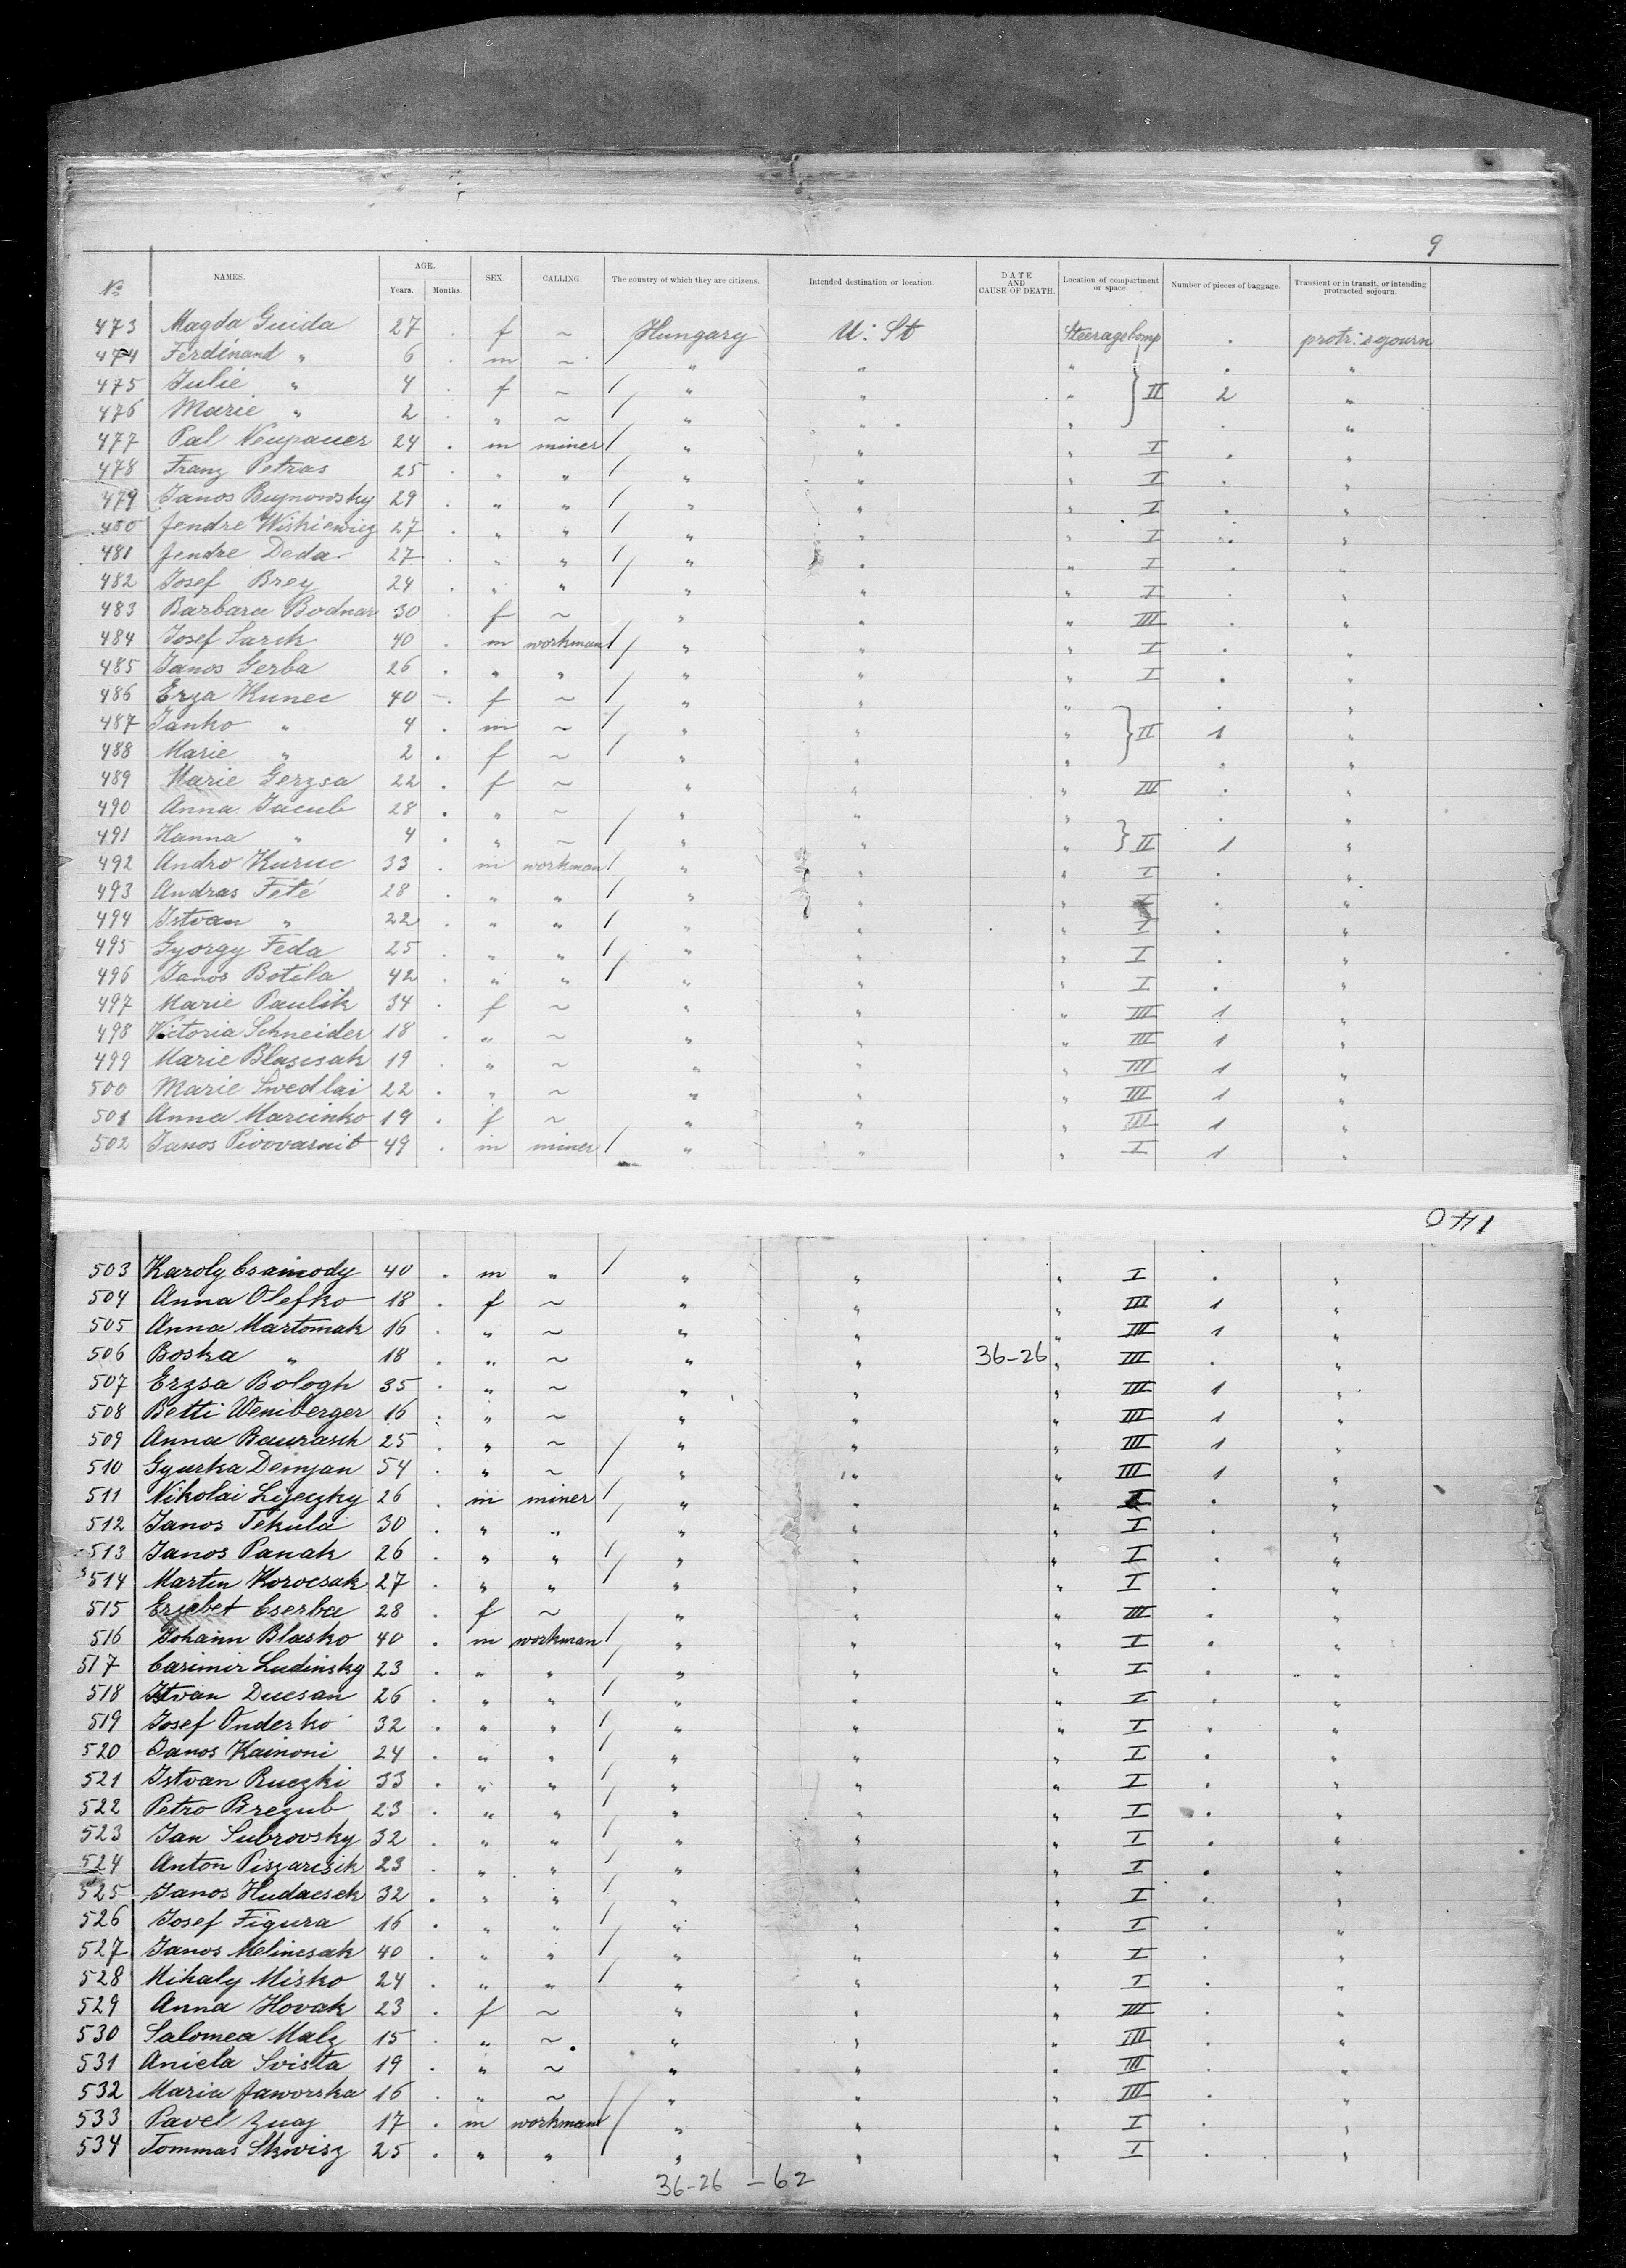 9
No NAMES. AGE. Years. Months. SEX. CALLING. The country of which they are citizens. Intended destination or location. DATE AND CAUSE OF DEATH. Location of compartment or space. Number of pieces of baggage. Transient or in transit, or intending protracted sojourn.
473 Magda Guida 27 . f ~ Hungary U: St Steerage Comp . protr: sojourn
474 Ferdinand " 6 . m ~ " " " . "
475 Julie " 4 . f ~ / " " " } II 2 "
476 Marie " 2 . " ~ / " " " . "
477 Pal Neupauer 24 . m miner / " " " I . "
478 Franz Petras 25 . " " / " " " I . "
479 Janos Bujnowsky 29 . " " / " " " I . "
480 Jendre Wiskiewicz 27 . " " / " " " I . "
481 Jendre Deda 27 . " " / " " " I . "
482 Josef Brey 24 . " " / " " " I . "
483 Barbara Bodnar 30 . f ~ " " " III . "
484 Josef Sarck 40 . m workman / " " " I . "
485 Janos Gerba 26 . " " / " " " I . "
486 Erza Kunec 40 . f ~ / " " " . "
487 Janko " 4 . m ~ / " " " } II 1 "
488 Marie " 2 . f ~ / " " " . "
489 Marie Gerzsa 22 . f ~ " " " III . "
490 Anna Jacub 28 . " ~ / " " " . "
491 Hanna " 4 . " ~ / " " " } II 1 "
492 Andro Kuruc 33 . m workman / " " " I . "
493 Andras Feté 28 . " " / " " " I . "
494 Istvan " 22 . " " / " " " I . "
495 Gyorgy Feda 25 . " " / " " " I . "
496 Janos Botila 42 . " " / " " " I . "
497 Marie Paulik 34 . f ~ " " " III 1 "
498 Victoria Schneider 18 . " ~ " " " III 1 "
499 Marie Blascsak 19 . " ~ " " " III 1 "
500 Marie Swedlai 22 . " ~ " " " III 1 "
501 Anna Marcinko 19 . f ~ " " " III 1 "
502 Janos Pivovarnit 49 . m miner / " " " I 1 "
140
503 Karoly Csamody 40 . m " / " " " I . "
504 Anna Olefko 18 . f ~ " " " III 1 "
505 Anna Martomak 16 . " ~ " " " III 1 "
506 Boska " 18 . " ~ " " 36-26 " III . "
507 Erzsa Bologh 35 . " ~ " " " III 1 "
508 Betti Weniberger 16 . " ~ " " " III 1 "
509 Anna Baurasch 25 . " ~ / " " " III 1 "
510 Gyurka Demjan 54 . " ~ / " " " III 1 "
511 Nikolai Lizeczky 26 . m miner / " " " I . "
512 Janos Tekula 30 . " " " " " I . "
513 Janos Panak 26 . " " / " " " I . "
514 Martin Korocsak 27 . " " / " " " I . "
515 Erzebet Cserba 28 . f ~ " " " III . "
516 Johann Blasko 40 . m workman / " " " I . "
517 Casimir Ludinsky 23 . " " / " " " I . "
518 Istvan Ducsan 26 . " " / " " " I . "
519 Josef Onderko 32 . " " / " " " I . "
520 Janos Kainoni 24 . " " / " " " I . "
521 Istvan Ruczki 33 . " " / " " " I . "
522 Petro Brezub 23 . " " / " " " I . "
523 Jan Subrovsky 32 . " " / " " " I . "
524 Anton Piszarcsik 23 . " " / " " " I . "
525 Janos Hudacsek 32 . " " / " " " I . "
526 Josef Figura 16 . " " / " " " I . "
527 Janos Melincsak 40 . " " / " " " I . "
528 Mihaly Misko 24 . " " / " " " I . "
529 Anna Hovak 23 . f ~ " " " III . "
530 Salomea Malz 15 . " ~ " " " III . "
531 Aniela Svista 19 . " ~ " " " III . "
532 Maria Jaworska 16 . " ~ / " " " III . "
533 Pavel Zuaj 17 . m workman / " " " I . "
534 Tommas Skwisz 25 . " " / " " " I . "
36-26 - 62